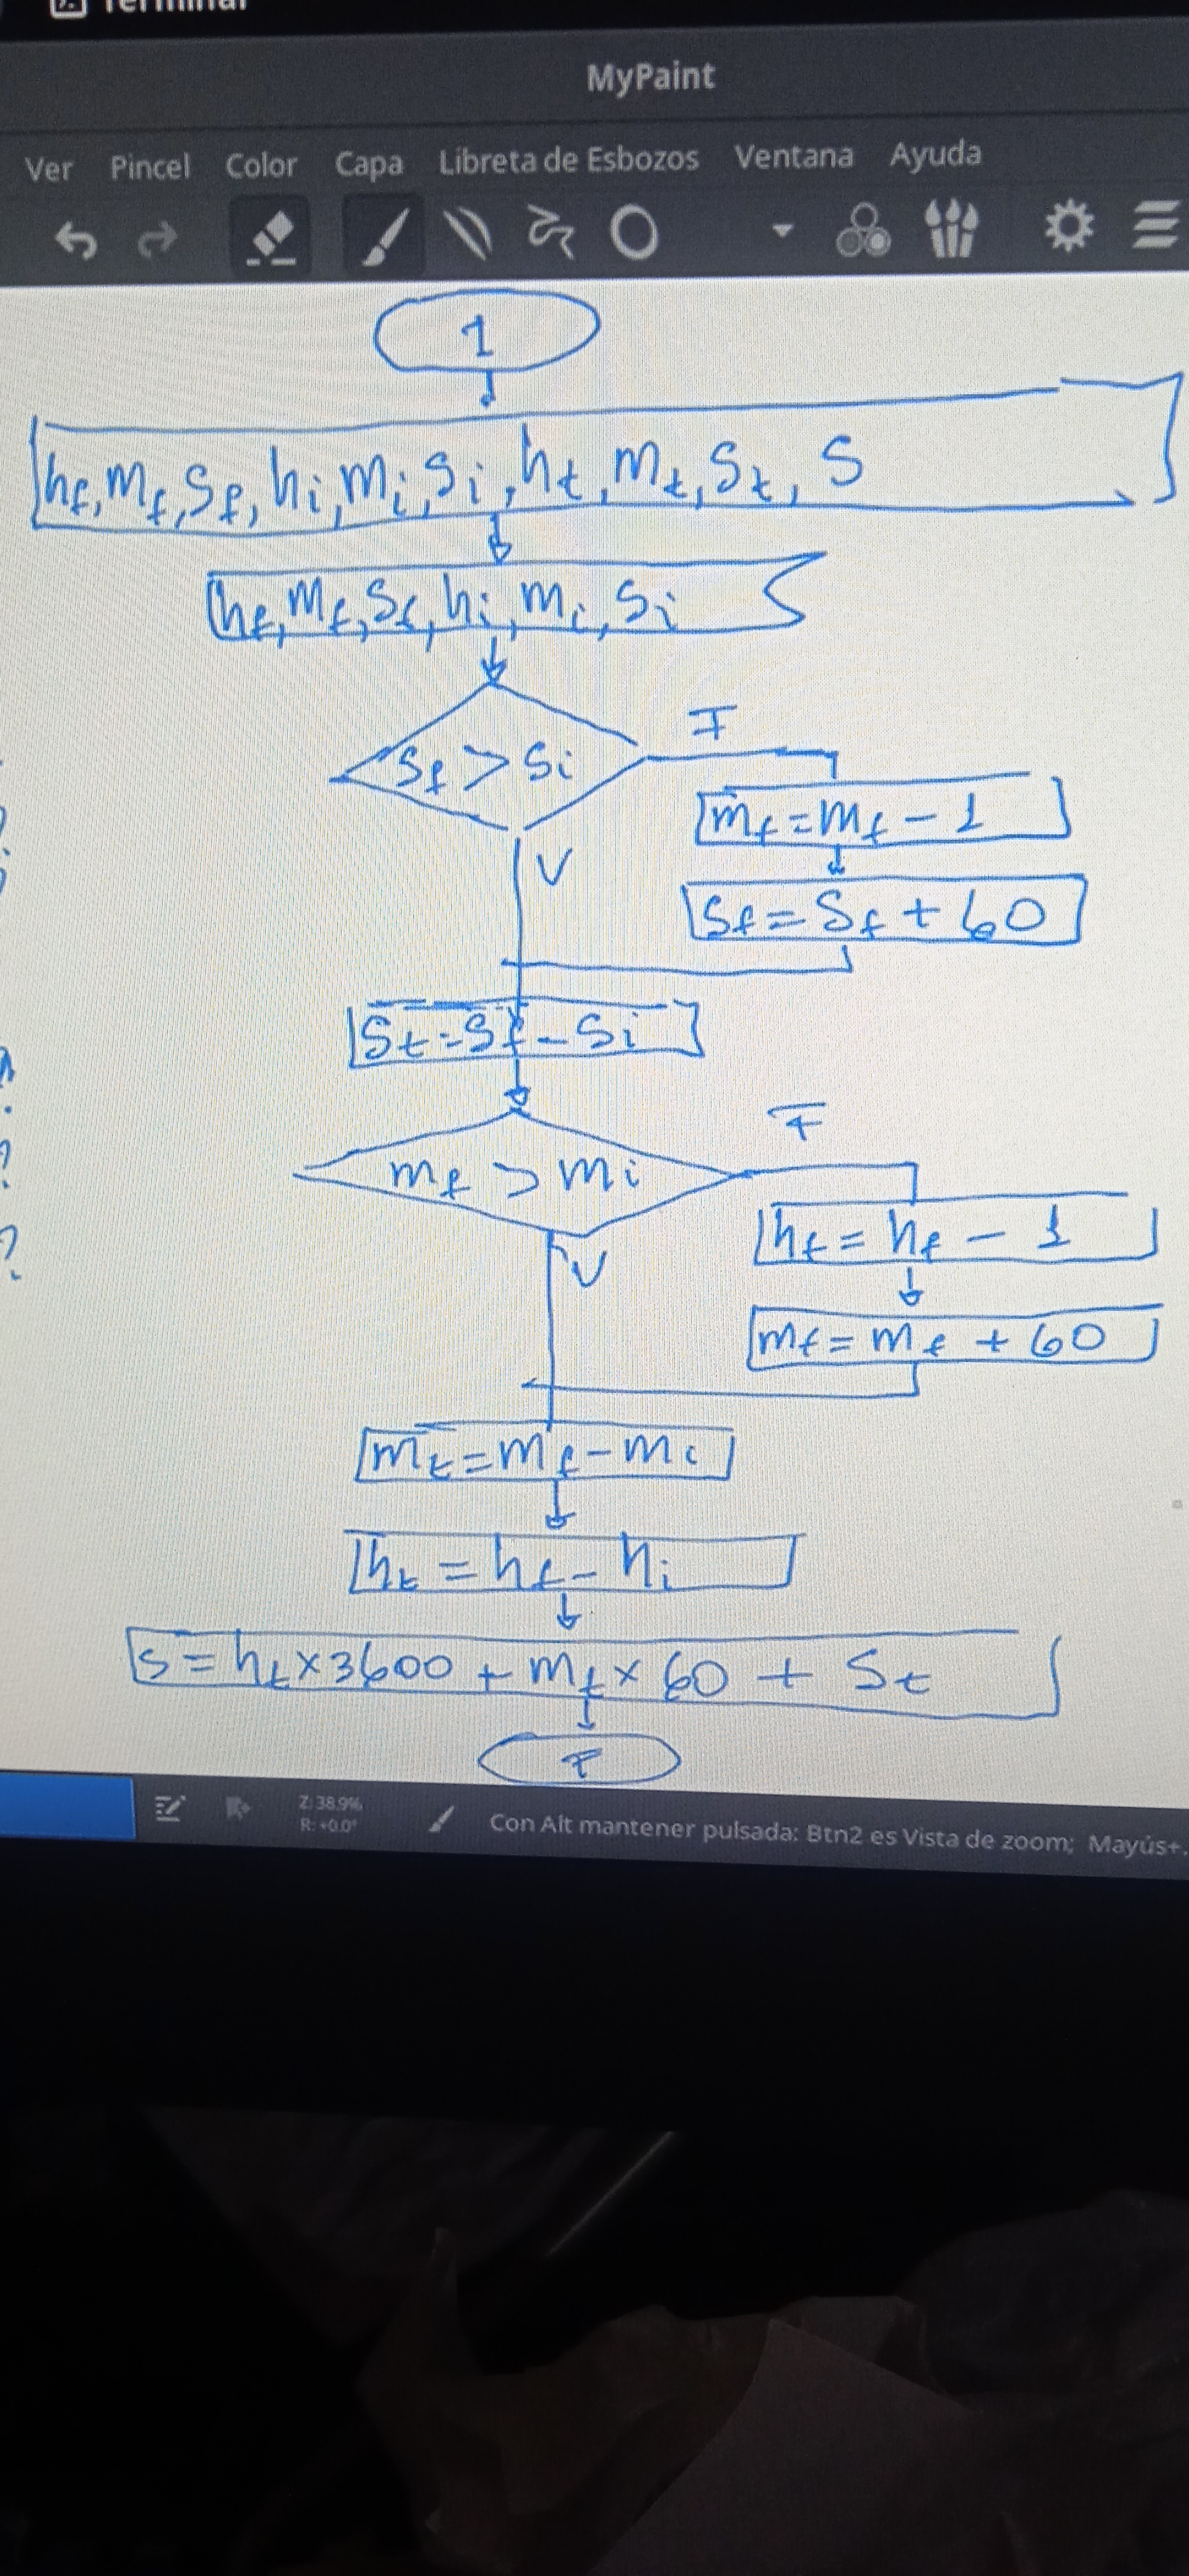 Terminal
MyPaint
Ver Pincel Color Capa Libreta de Esbozos Ventana Ayuda
1
hf, mf, sf, hi, mi, si, ht, mt, st, s
hf, mf, sf, hi, mi, si
sf > si
F
mf = mf - 1
V
sf = sf + 60
st = sf - si
F
mf > mi
hf = hf - 1
V
mf = mf + 60
mt = mf - mi
ht = hf - hi
s = ht x 3600 + mt x 60 + st
F
Z: 38.9%
R: +0.0°
Con Alt mantener pulsada: Btn2 es Vista de zoom; Mayús+